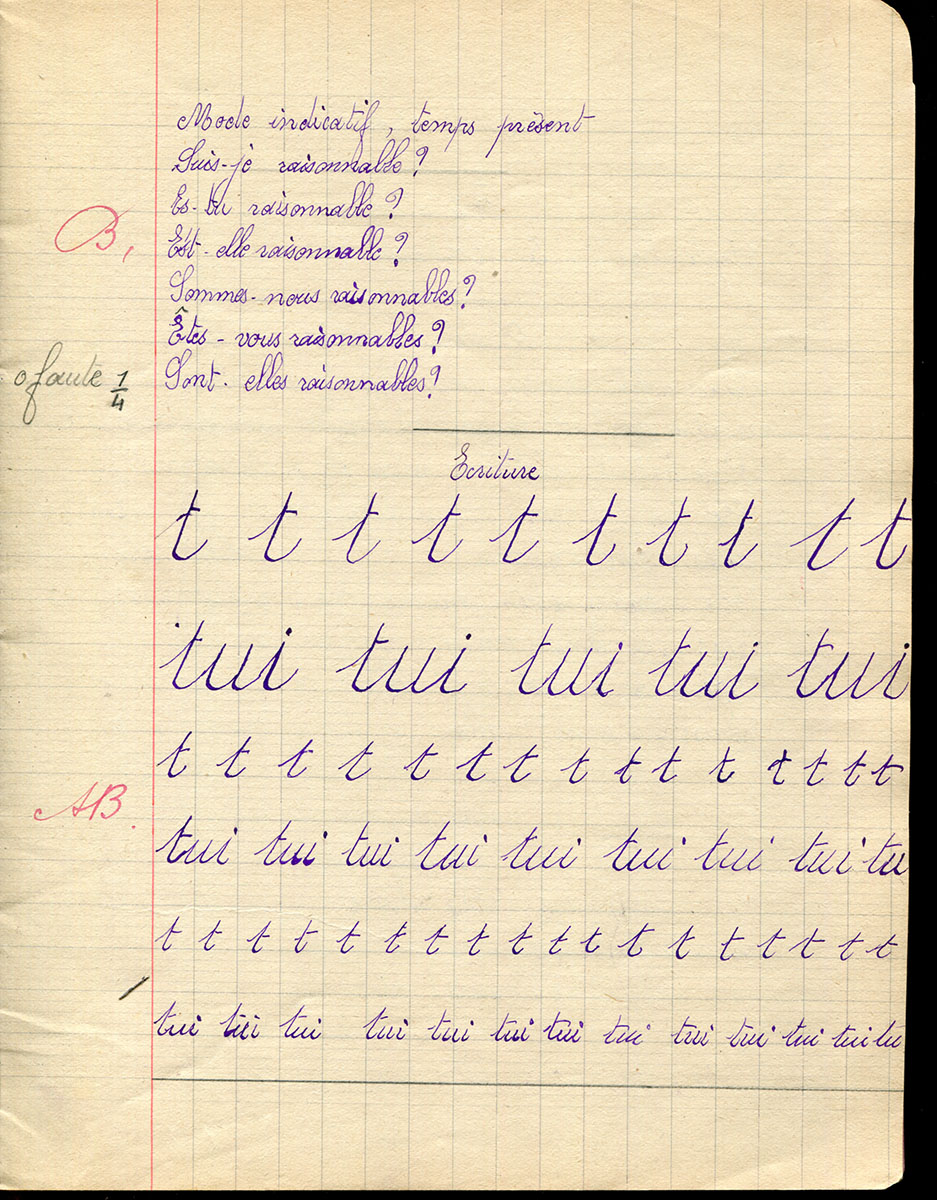 Mode indicatif, temps présent
Suis-je raisonnable ?
Es-tu raisonnable ?
B,
Est-elle raisonnable ?
Sommes-nous raisonnables ?
Êtes-vous raisonnables ?
0 faute 1/4
Sont-elles raisonnables ?
Ecriture
t t t t t t t t t t
tui tui tui tui tui
t t t t t t t t t t t t t t t
AB.
tui tui tui tui tui tui tui tui tu
t t t t t t t t t t t t t t t t t t
tui tui tui tui tui tui tui tui tui tui tui tui tu